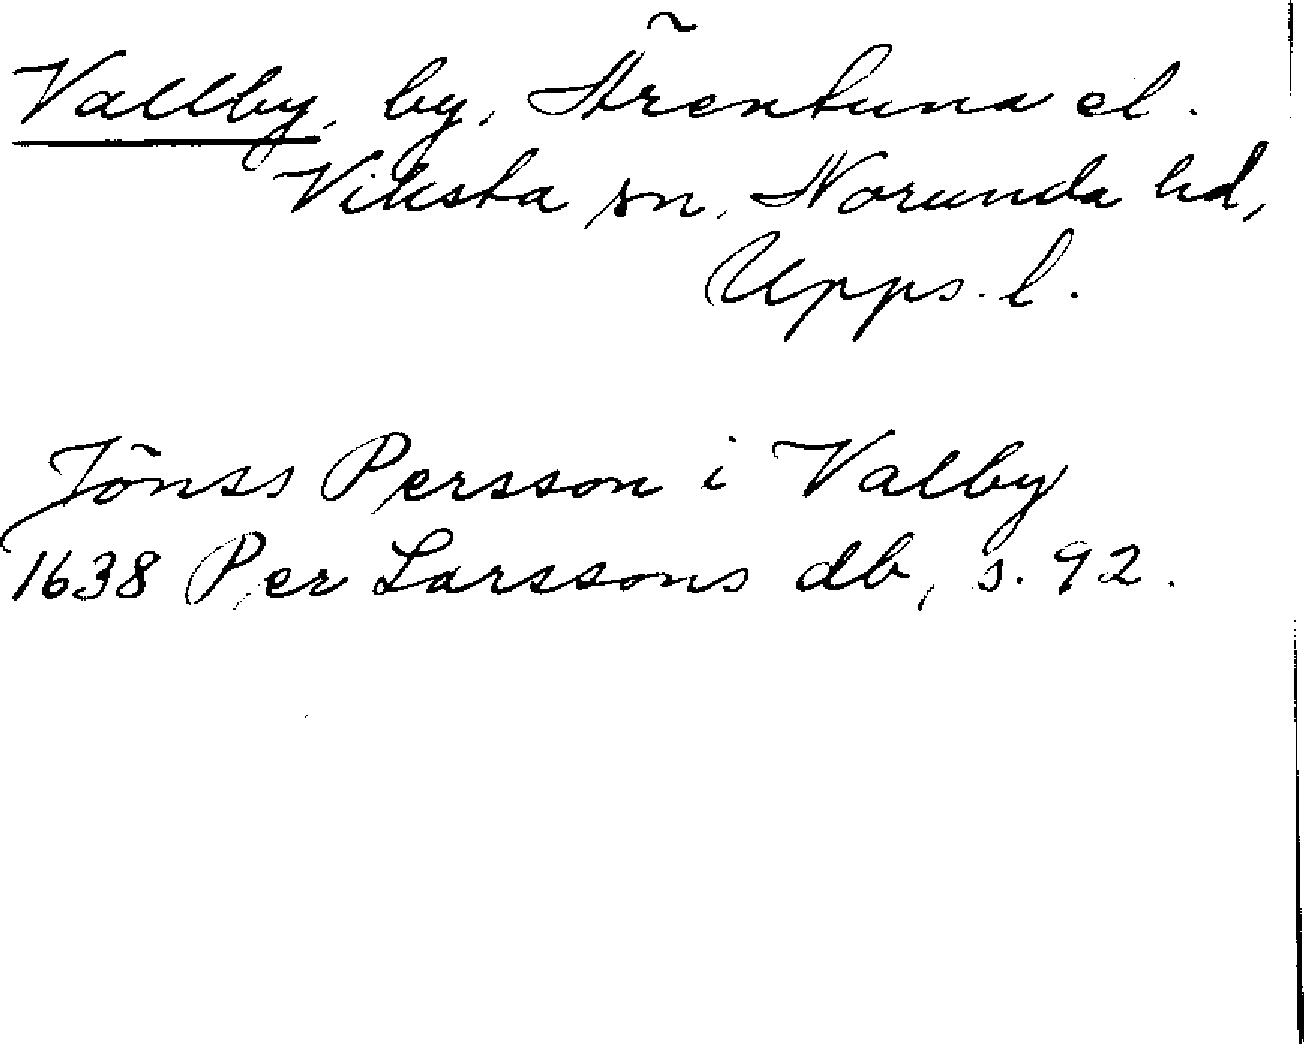 ~
Vallby, by, Ärentuna el.
Viksta sn, Norunda hd,
Upps. l.
Jönss Persson i Valby
1638 Per Larssons db, s. 92.